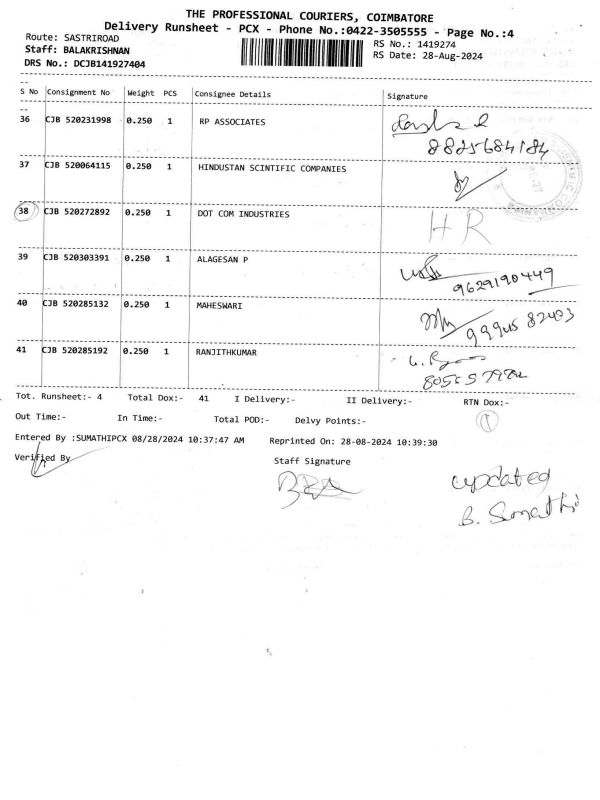 THE PROFESSIONAL COURIERS, COIMBATORE
Delivery Runsheet - PCX - Phone No.:0422-3505555 - Page No.:4
Route: SASTRIROAD
RS No.: 1419274
Staff: BALAKRISHNAN
RS Date: 28-Aug-2024
DRS No.: DCJB141927404
S No Consignment No Weight PCS Consignee Details Signature
36 CJB 520231998 0.250 1 RP ASSOCIATES
8825684184
37 CJB 520064115 0.250 1 HINDUSTAN SCINTIFIC COMPANIES
38 CJB 520272892 0.250 1 DOT COM INDUSTRIES HR
39 CJB 520303391 0.250 1 ALAGESAN P
9629190449
40 CJB 520285132 0.250 1 MAHESWARI
41 CJB 520285192 0.250 1 RANJITHKUMAR
Tot. Runsheet:- 4 Total Dox:- 41 I Delivery:- II Delivery:- RTN Dox:-
Out Time:- In Time:- Total POD:- Delvy Points:- 1
Entered By :SUMATHIPCX 08/28/2024 10:37:47 AM Reprinted On: 28-08-2024 10:39:30
Verified By Staff Signature
updated
B. Sumathi